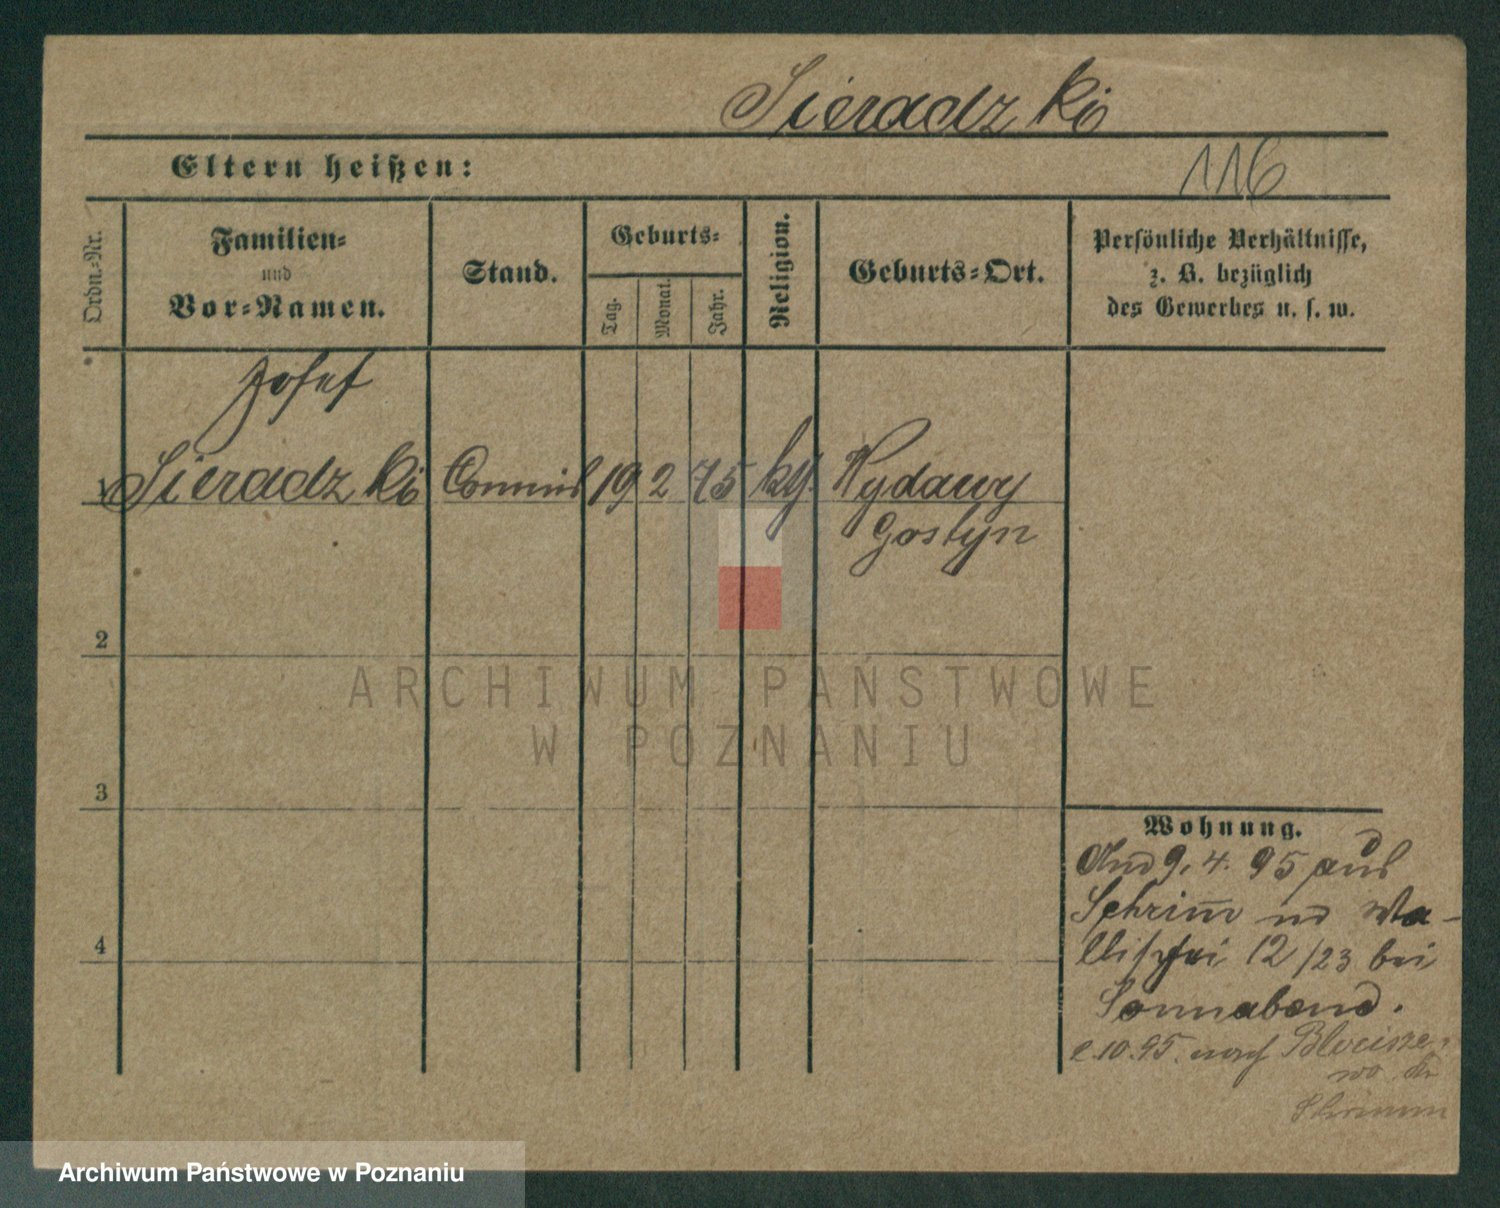 Sieradzki
Eltern heißen:
116
Ordn.-Nr.
Familien-
und
Vor-Namen.
Stand.
Geburts-
Tag.
Monat.
Jahr.
Religion.
Geburts-Ort.
Persönliche Verhältnisse,
z. B. bezüglich
des Gewerbes u. s. w.
Josef
1 Sieradzki Commis 19 2 75 Wydawy
Gostyn
2
ARCHIWUM PAŃSTWOWE
W POZNANIU
3
4
Wohnung.
9. 4. 95 aus
Schrimm Wa-
llischei 12/23 bei
Sonnabend.
2.10.95. nach
Schrimm
Archiwum Państwowe w Poznaniu